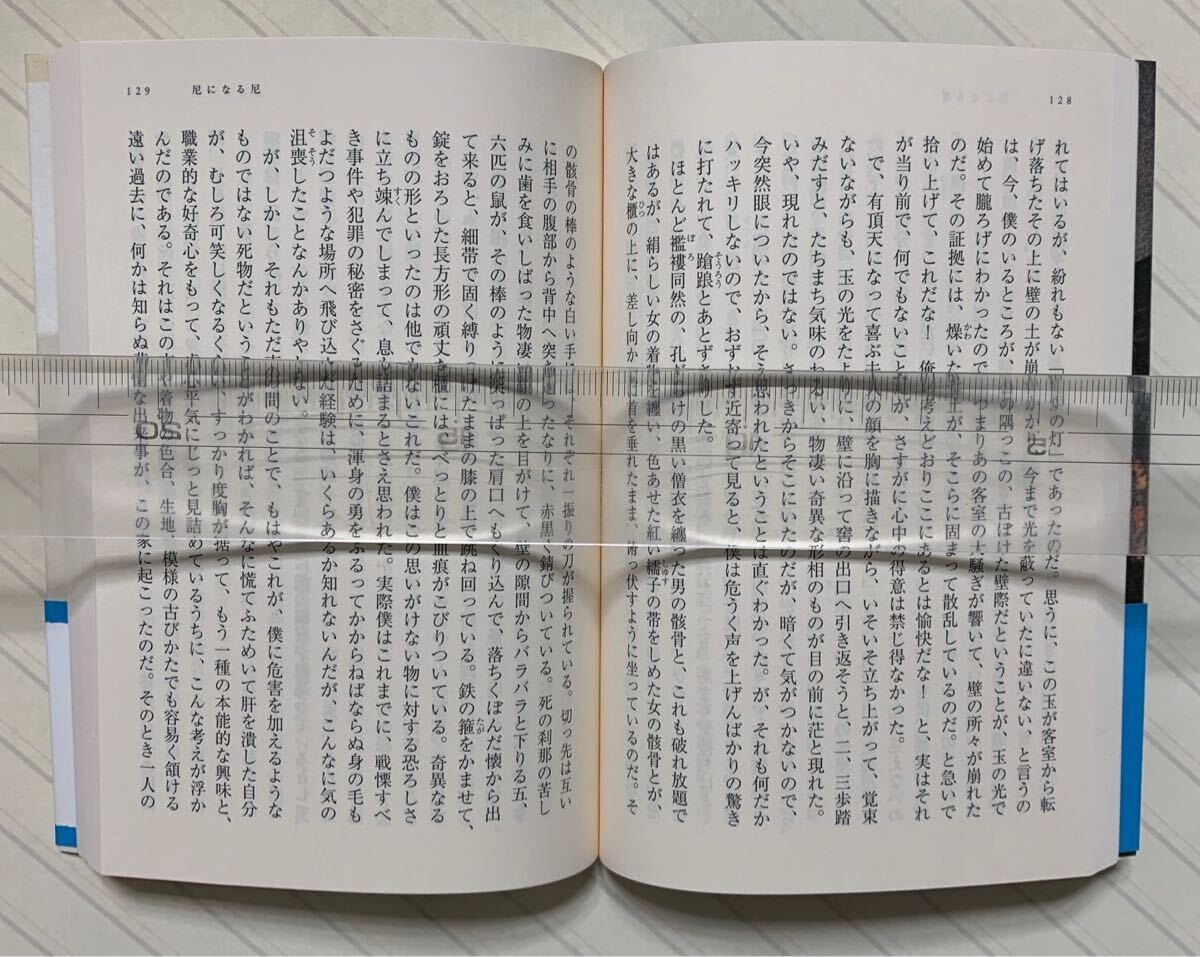 128
れてはいるが、紛れもない「 の灯」であったのだ。思うに、この玉が客室から転
げ落ちたその上に壁の土が崩 かかり、今まで光を蔽っていたに違いない、と言うの
は、今、僕のいるところが、 の隅っこの、古ぼけた壁際だということが、玉の光で
始めて朧ろげにわかったので、つまりあの客室の大騒ぎが響いて、壁の所々が崩れた
のだ。その証拠には、燥いた壁土が、そこらに固まって散乱しているのだ。と急いで
拾い上げて、これだな! 俺の考えどおりここにあるとは愉快だな! と、実はそれ
が当り前で、何でもないことだが、さすがに心中の得意は禁じ得なかった。
で、有頂天になって喜ぶ夫人の顔を胸に描きながら、いそいそ立ち上がって、覚束
ないながらも、玉の光をたよりに、壁に沿って窖の出口へ引き返そうと、二、三歩踏
みだすと、たちまち気味のわるい、物凄い奇異な形相のものが目の前に茫と現れた。
いや、現れたのではない。さっきからそこにいたのだが、暗くて気がつかないので、
今突然眼についたから、そう思われたということは直ぐわかった。が、それも何だか
ハッキリしないので、おずおず近寄って見ると、僕は危うく声を上げんばかりの驚き
に打たれて、蹌踉とあとずさりした。
ほとんど襤褸同然の、孔だらけの黒い僧衣を纏った男の骸骨と、これも破れ放題で
はあるが、絹らしい女の着物を纏い、色あせた紅い繻子の帯をしめた女の骸骨とが、
大きな櫃の上に、差し向かいに首を垂れたまま、俯っ伏すように坐っているのだ。そ
129 尼になる尼
の骸骨の棒のような白い手には、それぞれ一振りの刀が握られている。切っ先は互い
に相手の腹部から背中へ突き通ったなりに、赤黒く錆びついている。死の刹那の苦し
みに歯を食いしばった物凄い顔の上を目がけて、壁の隙間からバラバラと下りる五、
六匹の鼠が、その棒のように突っぱった肩口へもぐり込んで、落ちくぼんだ懐から出
て来ると、細帯で固く縛りつけたままの膝の上で跳ね回っている。鉄の箍をかませて、
錠をおろした長方形の頑丈な櫃には、べっとりと血痕がこびりついている。奇異なる
ものの形といったのは他でもないこれだ。僕はこの思いがけない物に対する恐ろしさ
に立ち竦んでしまって、息も詰まるとさえ思われた。実際僕はこれまでに、戦慄すべ
き事件や犯罪の秘密をさぐるために、渾身の勇をふるってかからねばならぬ身の毛も
よだつような場所へ飛び込んだ経験は、いくらあるか知れないんだが、こんなに気の
沮喪したことなんかありゃしない。
が、しかし、それもただ束の間のことで、もはやこれが、僕に危害を加えるような
ものではない死物だということがわかれば、そんなに慌てふためいて肝を潰した自分
が、むしろ可笑しくなるくらい、すっかり度胸が据って、もう一種の本能的な興味と、
職業的な好奇心をもって、虚心平気にじっと見詰めているうちに、こんな考えが浮か
んだのである。それはこの や着物の色合、生地、模様の古びかたでも容易く頷ける
遠い過去に、何かは知らぬ な出来事が、この家に起こったのだ。そのとき一人の